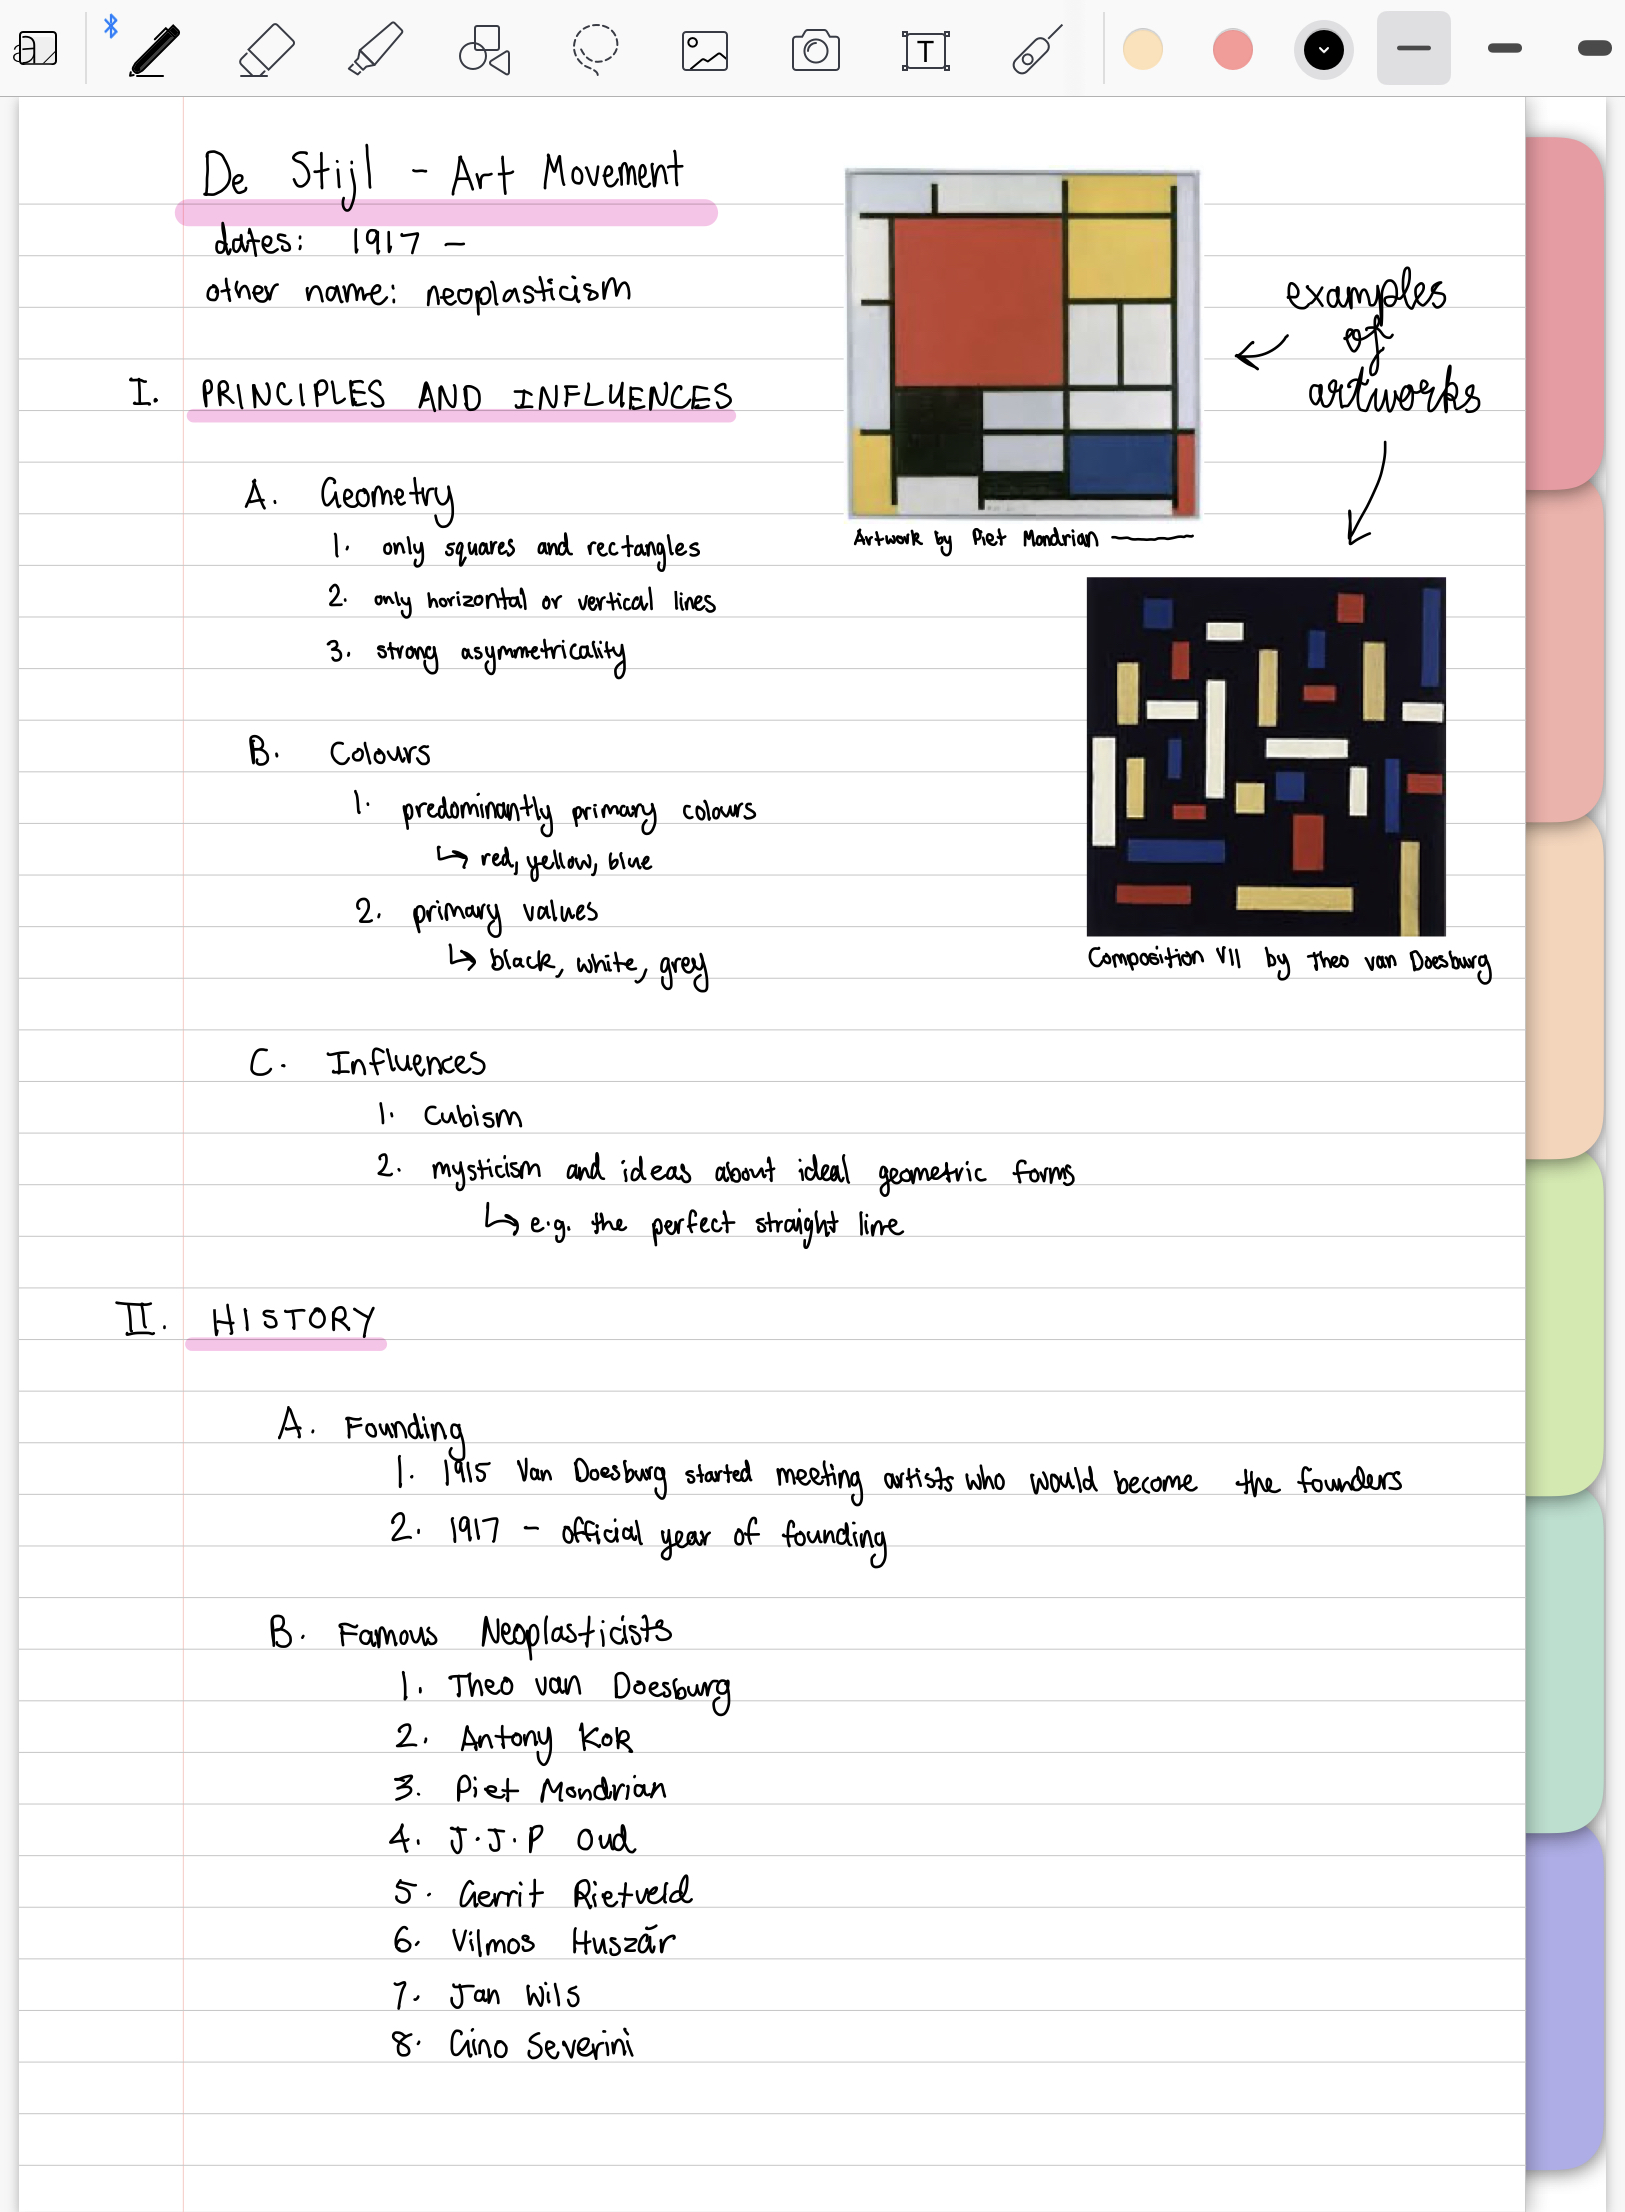 T
De Stijl - Art Movement
dates: 1917 -
other name: neoplasticism
I. PRINCIPLES AND INFLUENCES
A. Geometry
1. only squares and rectangles
2. only horizontal or vertical lines
3. strong asymmetricality
B. Colours
1. predominantly primary colours
↳ red, yellow, blue
2. primary values
↳ black, white, grey
C. Influences
1. Cubism
2. mysticism and ideas about ideal geometric forms
↳ e.g. the perfect straight line
examples
of
artworks
Artwork by Piet Mondrian
Composition VII by Theo van Doesburg
II. HISTORY
A. Founding
1. 1915 Van Doesburg started meeting artists who would become the founders
2. 1917 - official year of founding
B. Famous Neoplasticists
1. Theo van Doesburg
2. Antony Kok
3. Piet Mondrian
4. J.J.P Oud
5. Gerrit Rietveld
6. Vilmos Huszár
7. Jan Wils
8. Gino Severini